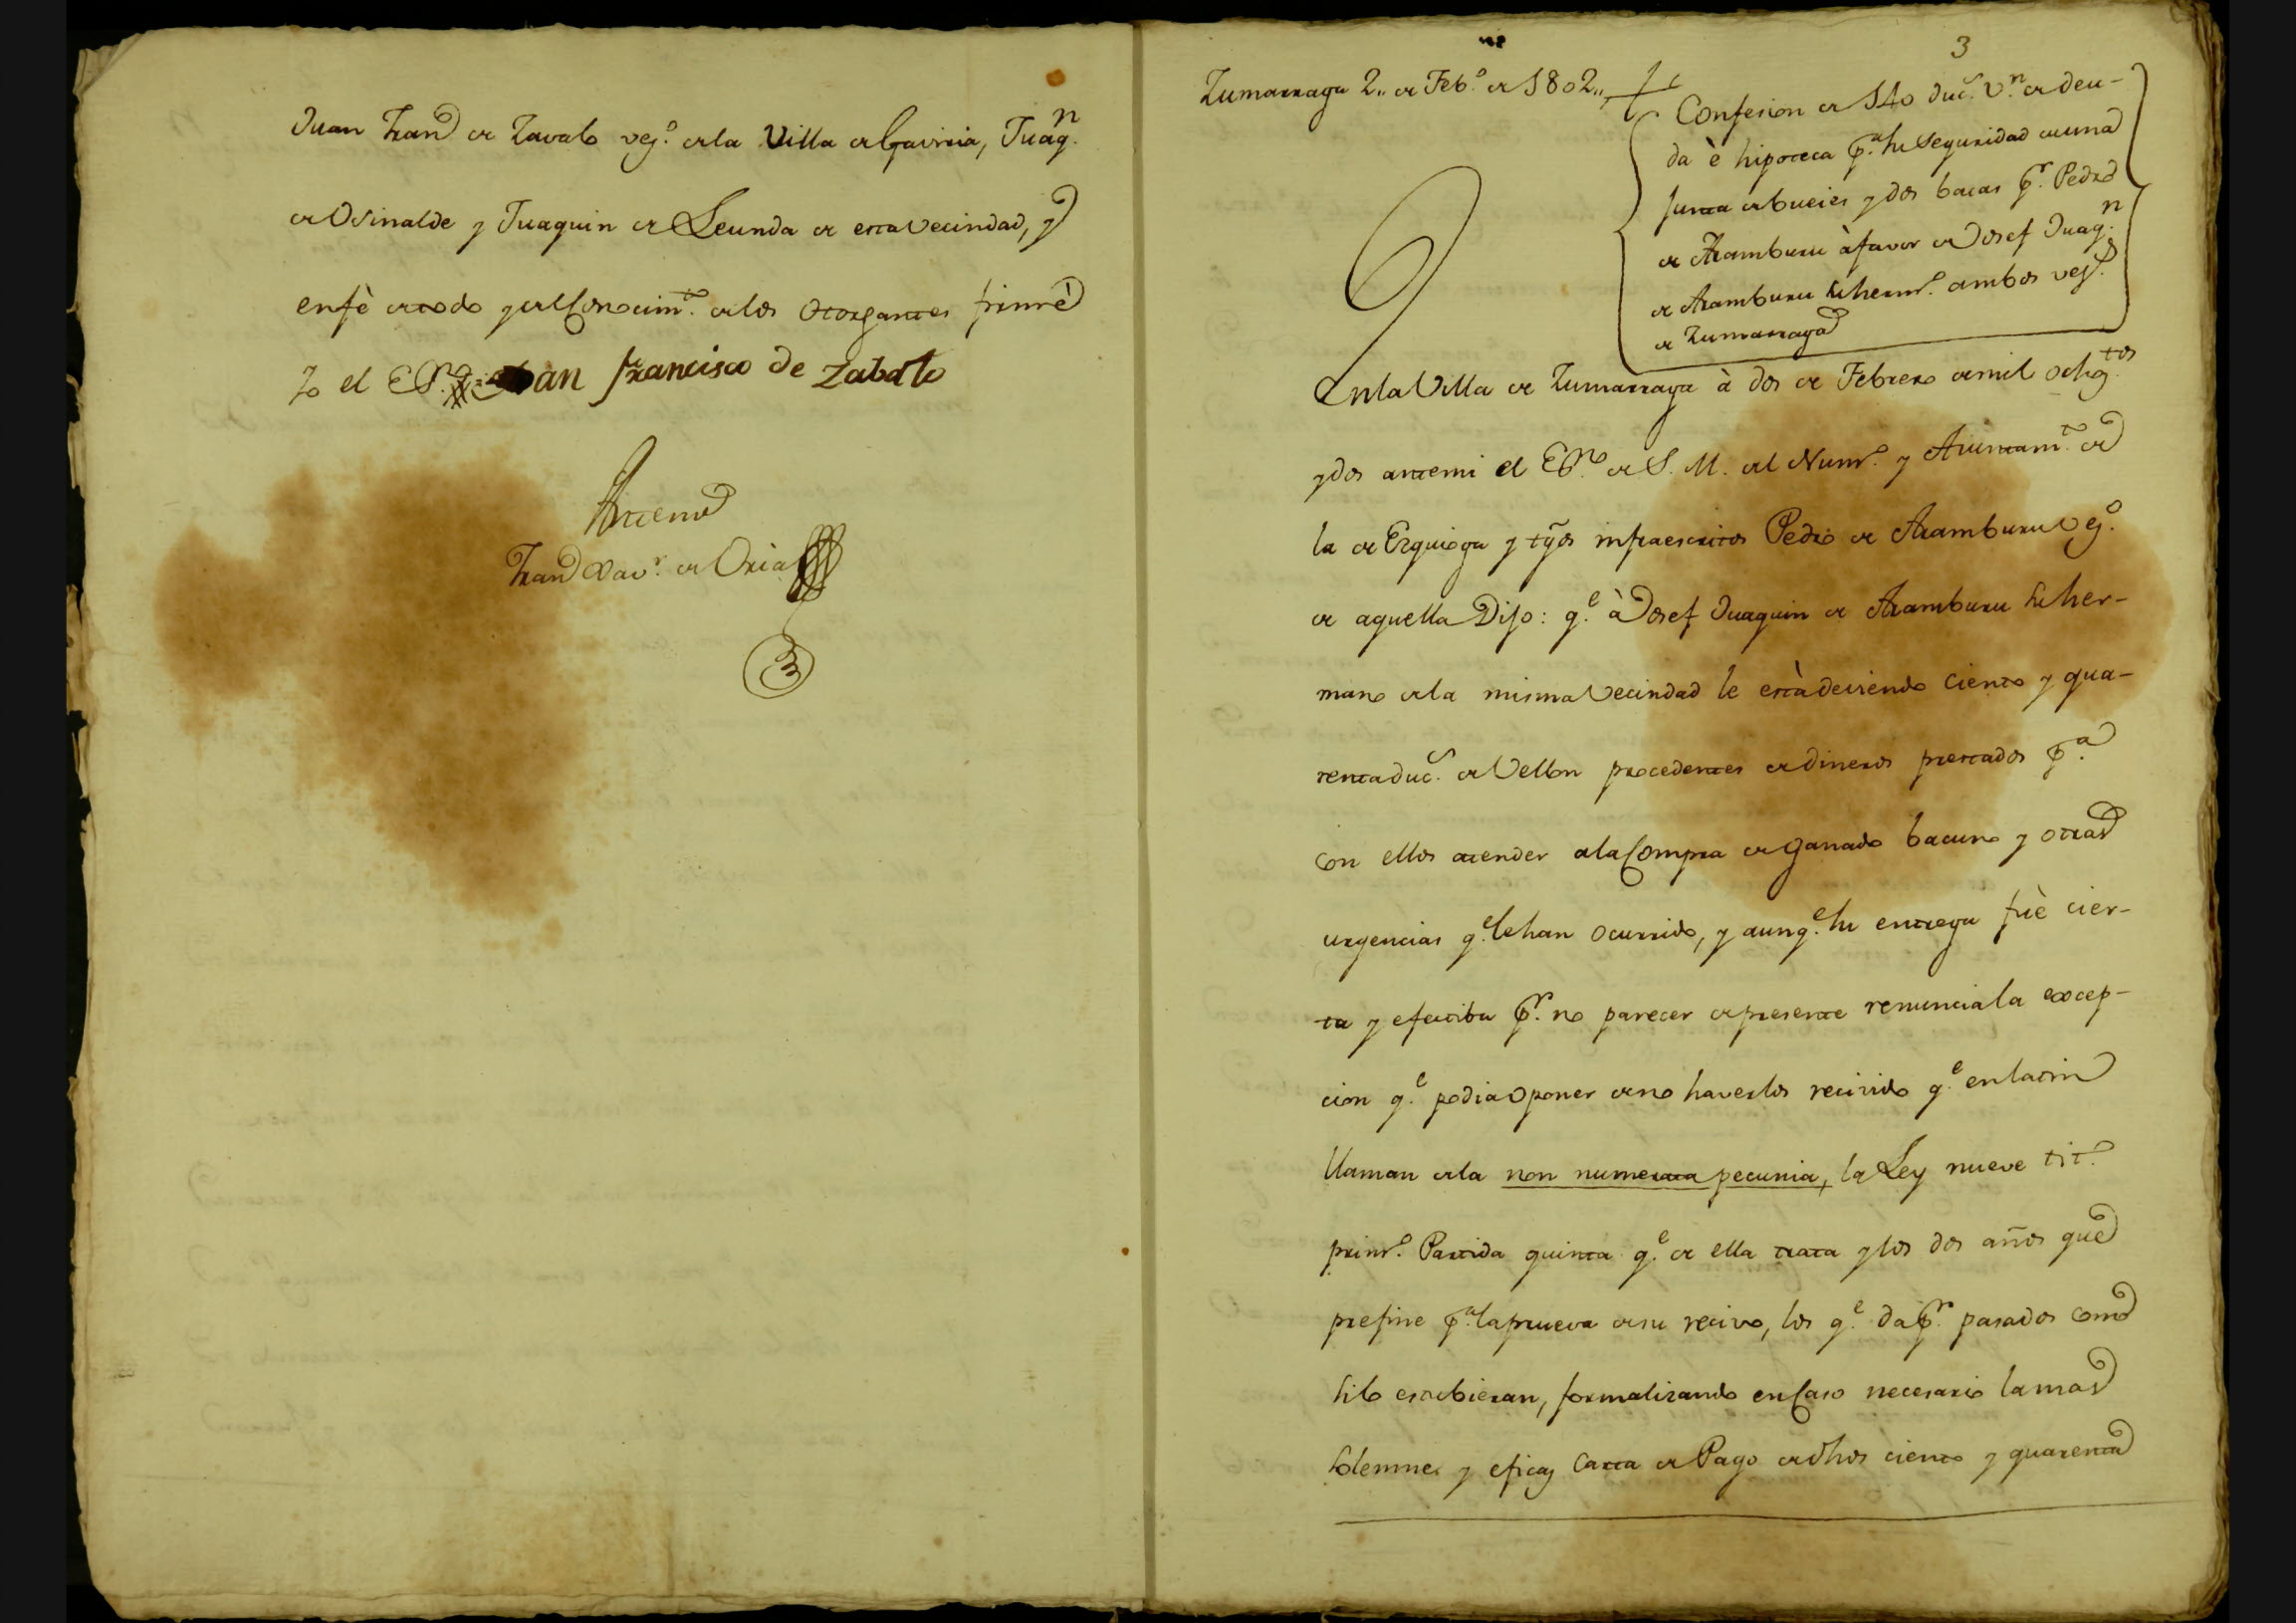 Juan Fran.co de Zavalo vez.o de la Villa de Gaviria, Juaq.n
de Osinalde y Juaquin de Leunda de esta Vecindad, y
en fè de todo y del Conocim.to de los Otorgantes firmè
Yo el Es.no Juan francisco de Zabalo
Antemi
Fran.co Xav.r de Oria
3
Zumarraga 2,, de Feb.o de 1802,,
Confesion de 140 duc.s v.n de deu-
da è hipoteca p.a su Seguridad de una
junta de bueies y dos bacas p.r Pedro
de Aramburu à favor de Josef Juaq.n
de Aramburu su herm.o ambos vez.s
de Zumarraga
En la Villa de Zumarraga à dos de Febrero de mil ochoz.tos
y dos ante mi el Es.no de S. M. del Num.o y Aiuntam.to de
la de Ezquioga y tgos infraescritos Pedro de Aramburu vez.o
de aquella Dijo: q.e à Josef Juaquin de Aramburu su her-
mano de la misma Vecindad le està deviendo ciento y qua-
renta duc.s de Vellon procedentes de dineros prestados p.a
con ellos atender a la Compra de ganado bacuno y otras
urgencias q.e le han ocurrido, y aunq.e su entrega fuè cier-
ta y efectiba p.r no parecer de presente renuncia la excep-
cion q.e podia oponer de no haverlos recivido q.e en latin
llaman de la non numerata pecunia, la Ley nueve tit.o
prim.o Partida quinta q.e de ella trata y los dos años que
prefine p.a la prueva de su recivo, los q.e da p.r pasados como
si lo estubieran, formalizando en Caso necesario la mas
solemne y eficaz Carta de Pago de dhos ciento y quarenta